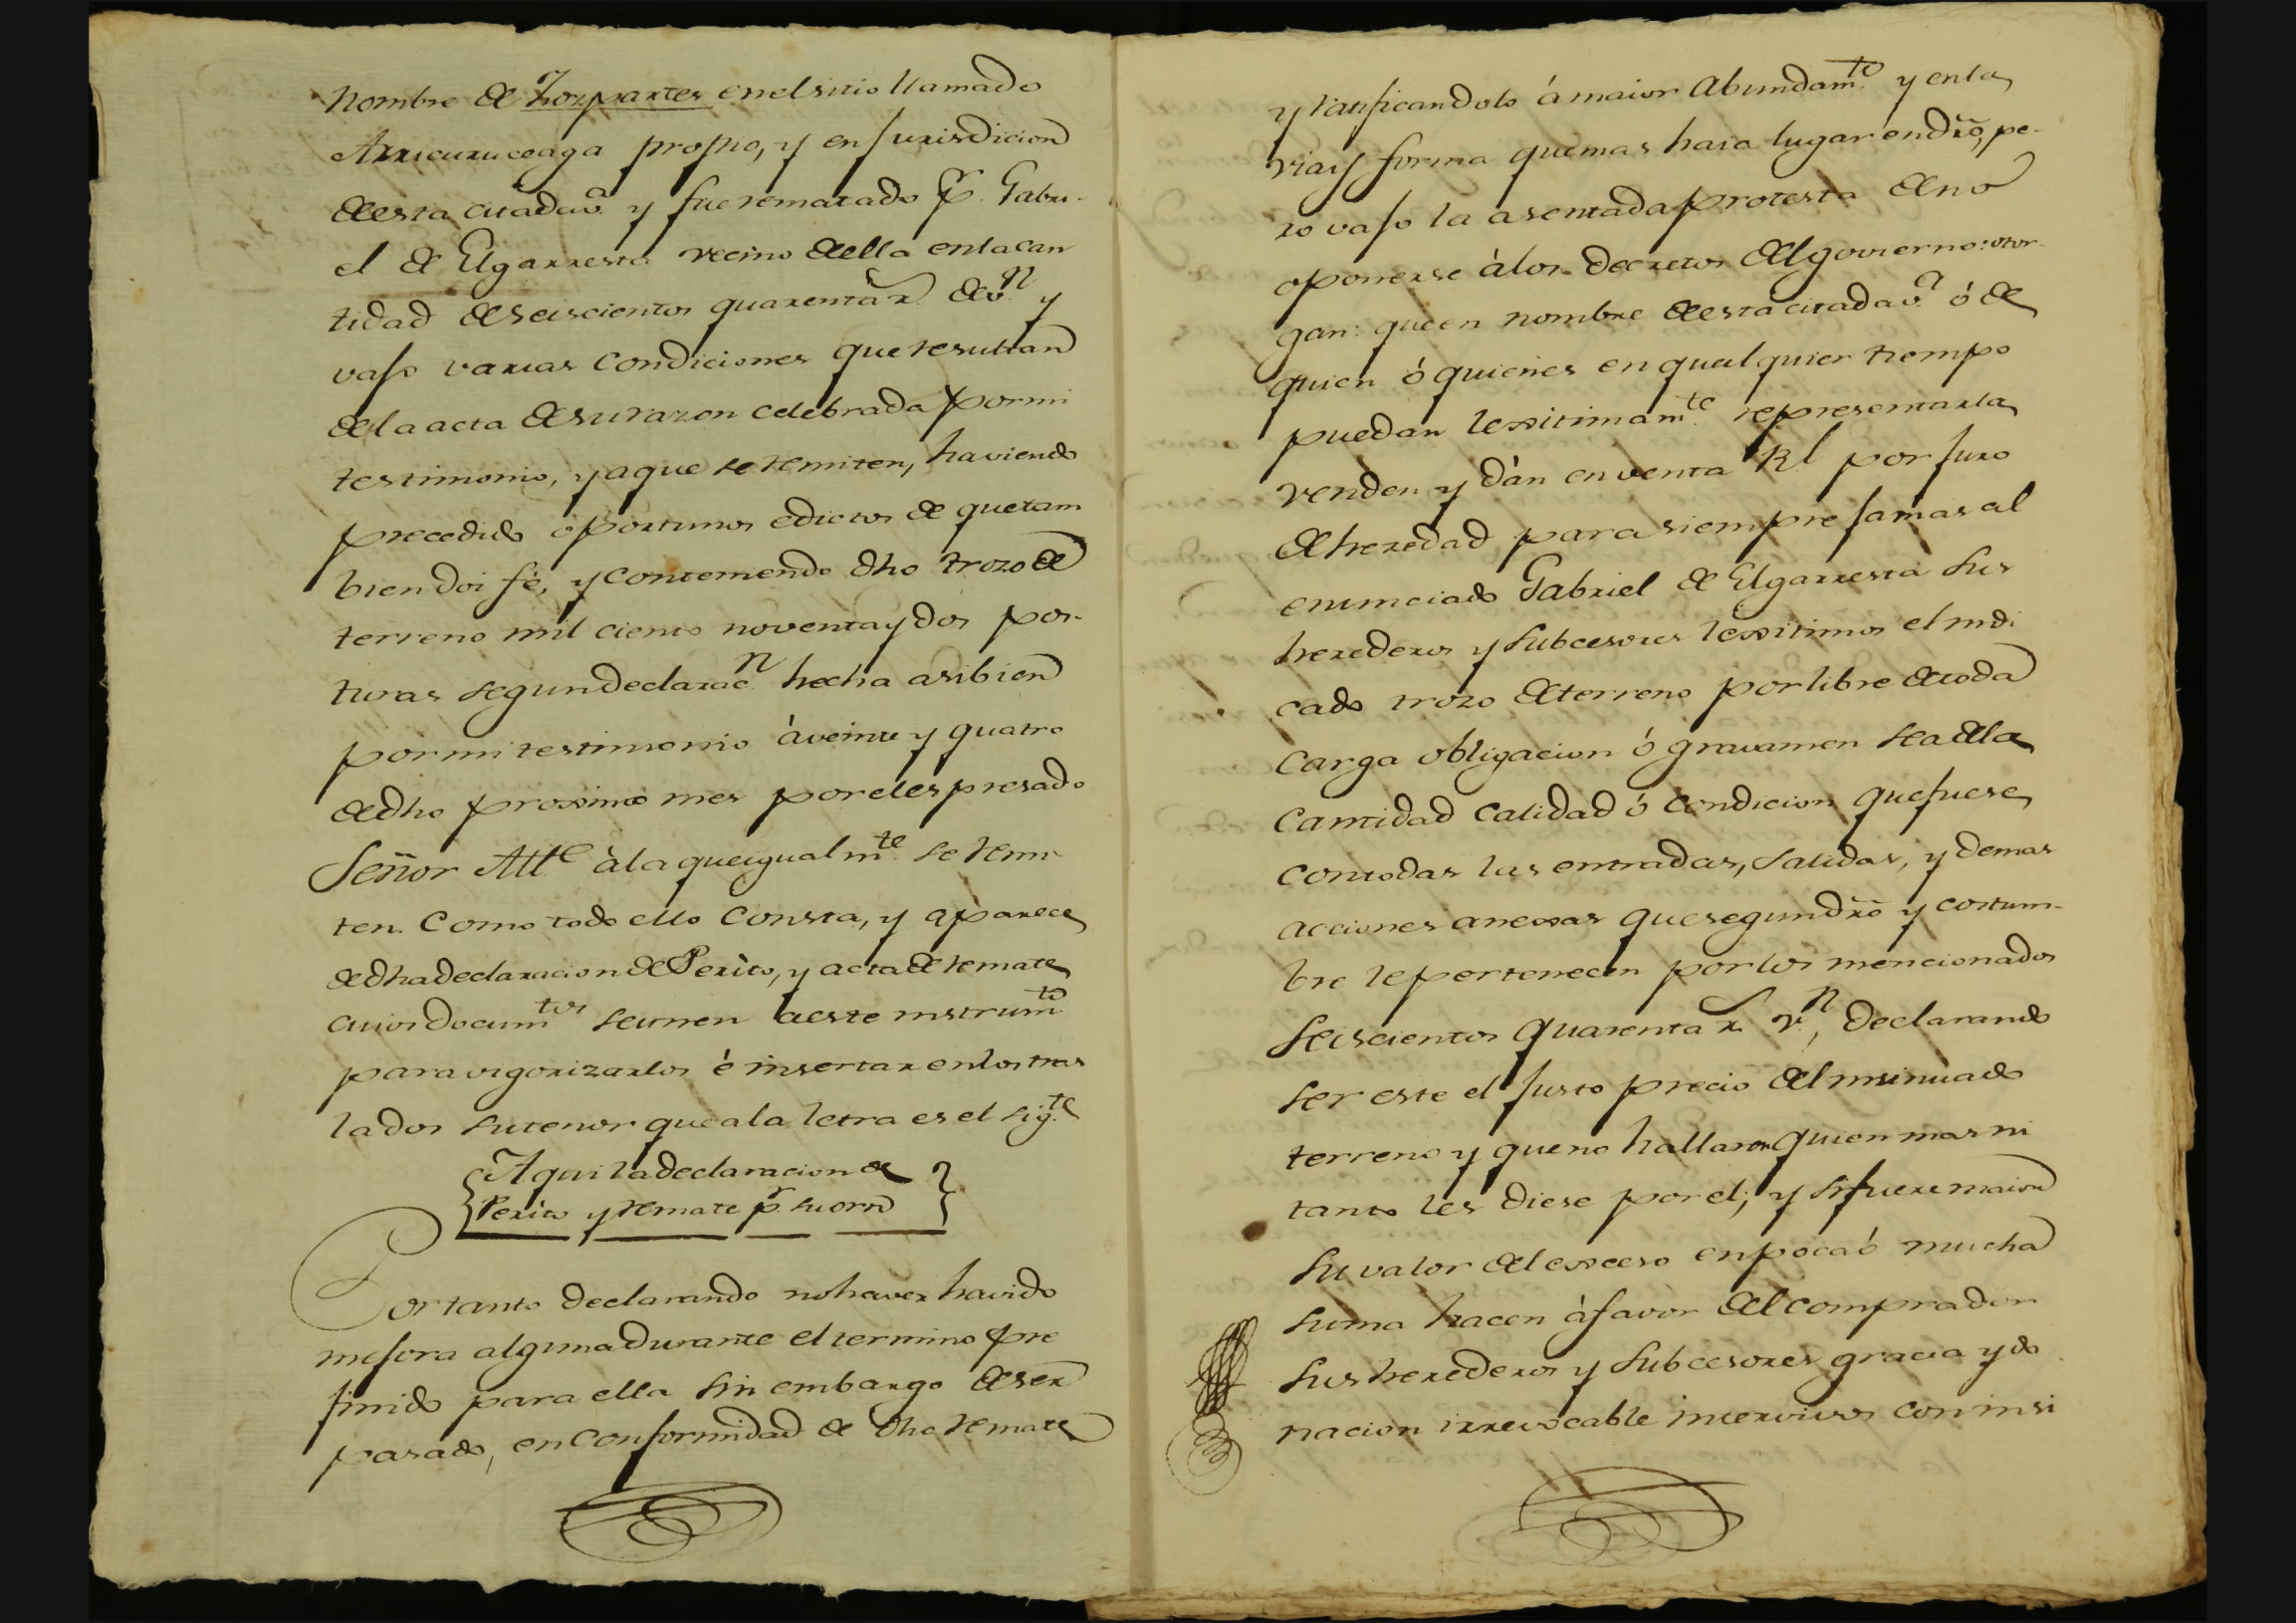 Nombre de Zozpartes en el sitio llamado
Arricuruceaga propio, y en Jurisdicion
de esta citada v.ª y fue rematado p.r Gabri-
el de Elgarresta vecino de ella en la can
tidad de seiscientos quarenta r.s de v.n y
vajo varias condiciones que resultan
de la acta de su razon celebrada por mi
testimonio, y a que se remiten, haviendo
precedido oportunos edictos de que tam
bien doi fé, y conteniendo dho trozo de
terreno mil ciento noventa y dos pos-
turas segun declarac.n hecha asi bien
por mi testimonio á veinte y quatro
de dho proximo mes por el espresado
Señor Alc.e à la que igualm.te se remi
ten. Como todo ello consta, y aparece
de dha declaracion de Perito, y acta de remate
cuios docum.tos se unen a este instrum.to
para vigorizarlos é insertar en los tras
lados su tenor que a la letra es el sig.te
Aqui la declaracion de
Perito y remate p.r su orn
Por tanto declarando no haver havido
mejora alguna durante el termino pre
finido para ella sin embargo de ser
pasado, en conformidad de dho remate
y ratificandolo á maior abundam.to y en la
via y forma que mas haia lugar en dr̃o, pe-
ro vajo la asentada protesta de no
oponerse à los Decretos del govierno: otor-
gan: que en nombre de esta citada v.ª ó de
quien ó quienes en qualquier tiempo
puedan lexitimam.te representarla
venden y dán en venta R.l por Juro
de heredad para siempre jamas al
enunciado Gabriel de Elgarresta sus
herederos y subcesores lexitimos el indi
cado trozo de terreno por libre de toda
carga obligacion ó gravamen sea de la
cantidad calidad ó condicion que fuese
con todas las entradas, salidas, y demas
acciones anexas que segun dr̃o y costum-
bre le pertenecen por los mencionados
seiscientos quarenta r.s v.n, declarando
ser este el Justo precio del insinuado
terreno y que no hallaron quien mas ni
tanto les diese por el; y si fuere maior
su valor del exceso en poca ó mucha
suma hacen á favor del comprador
sus herederos y subcesores gracia y do
nacion irrevocable intervivos con insi